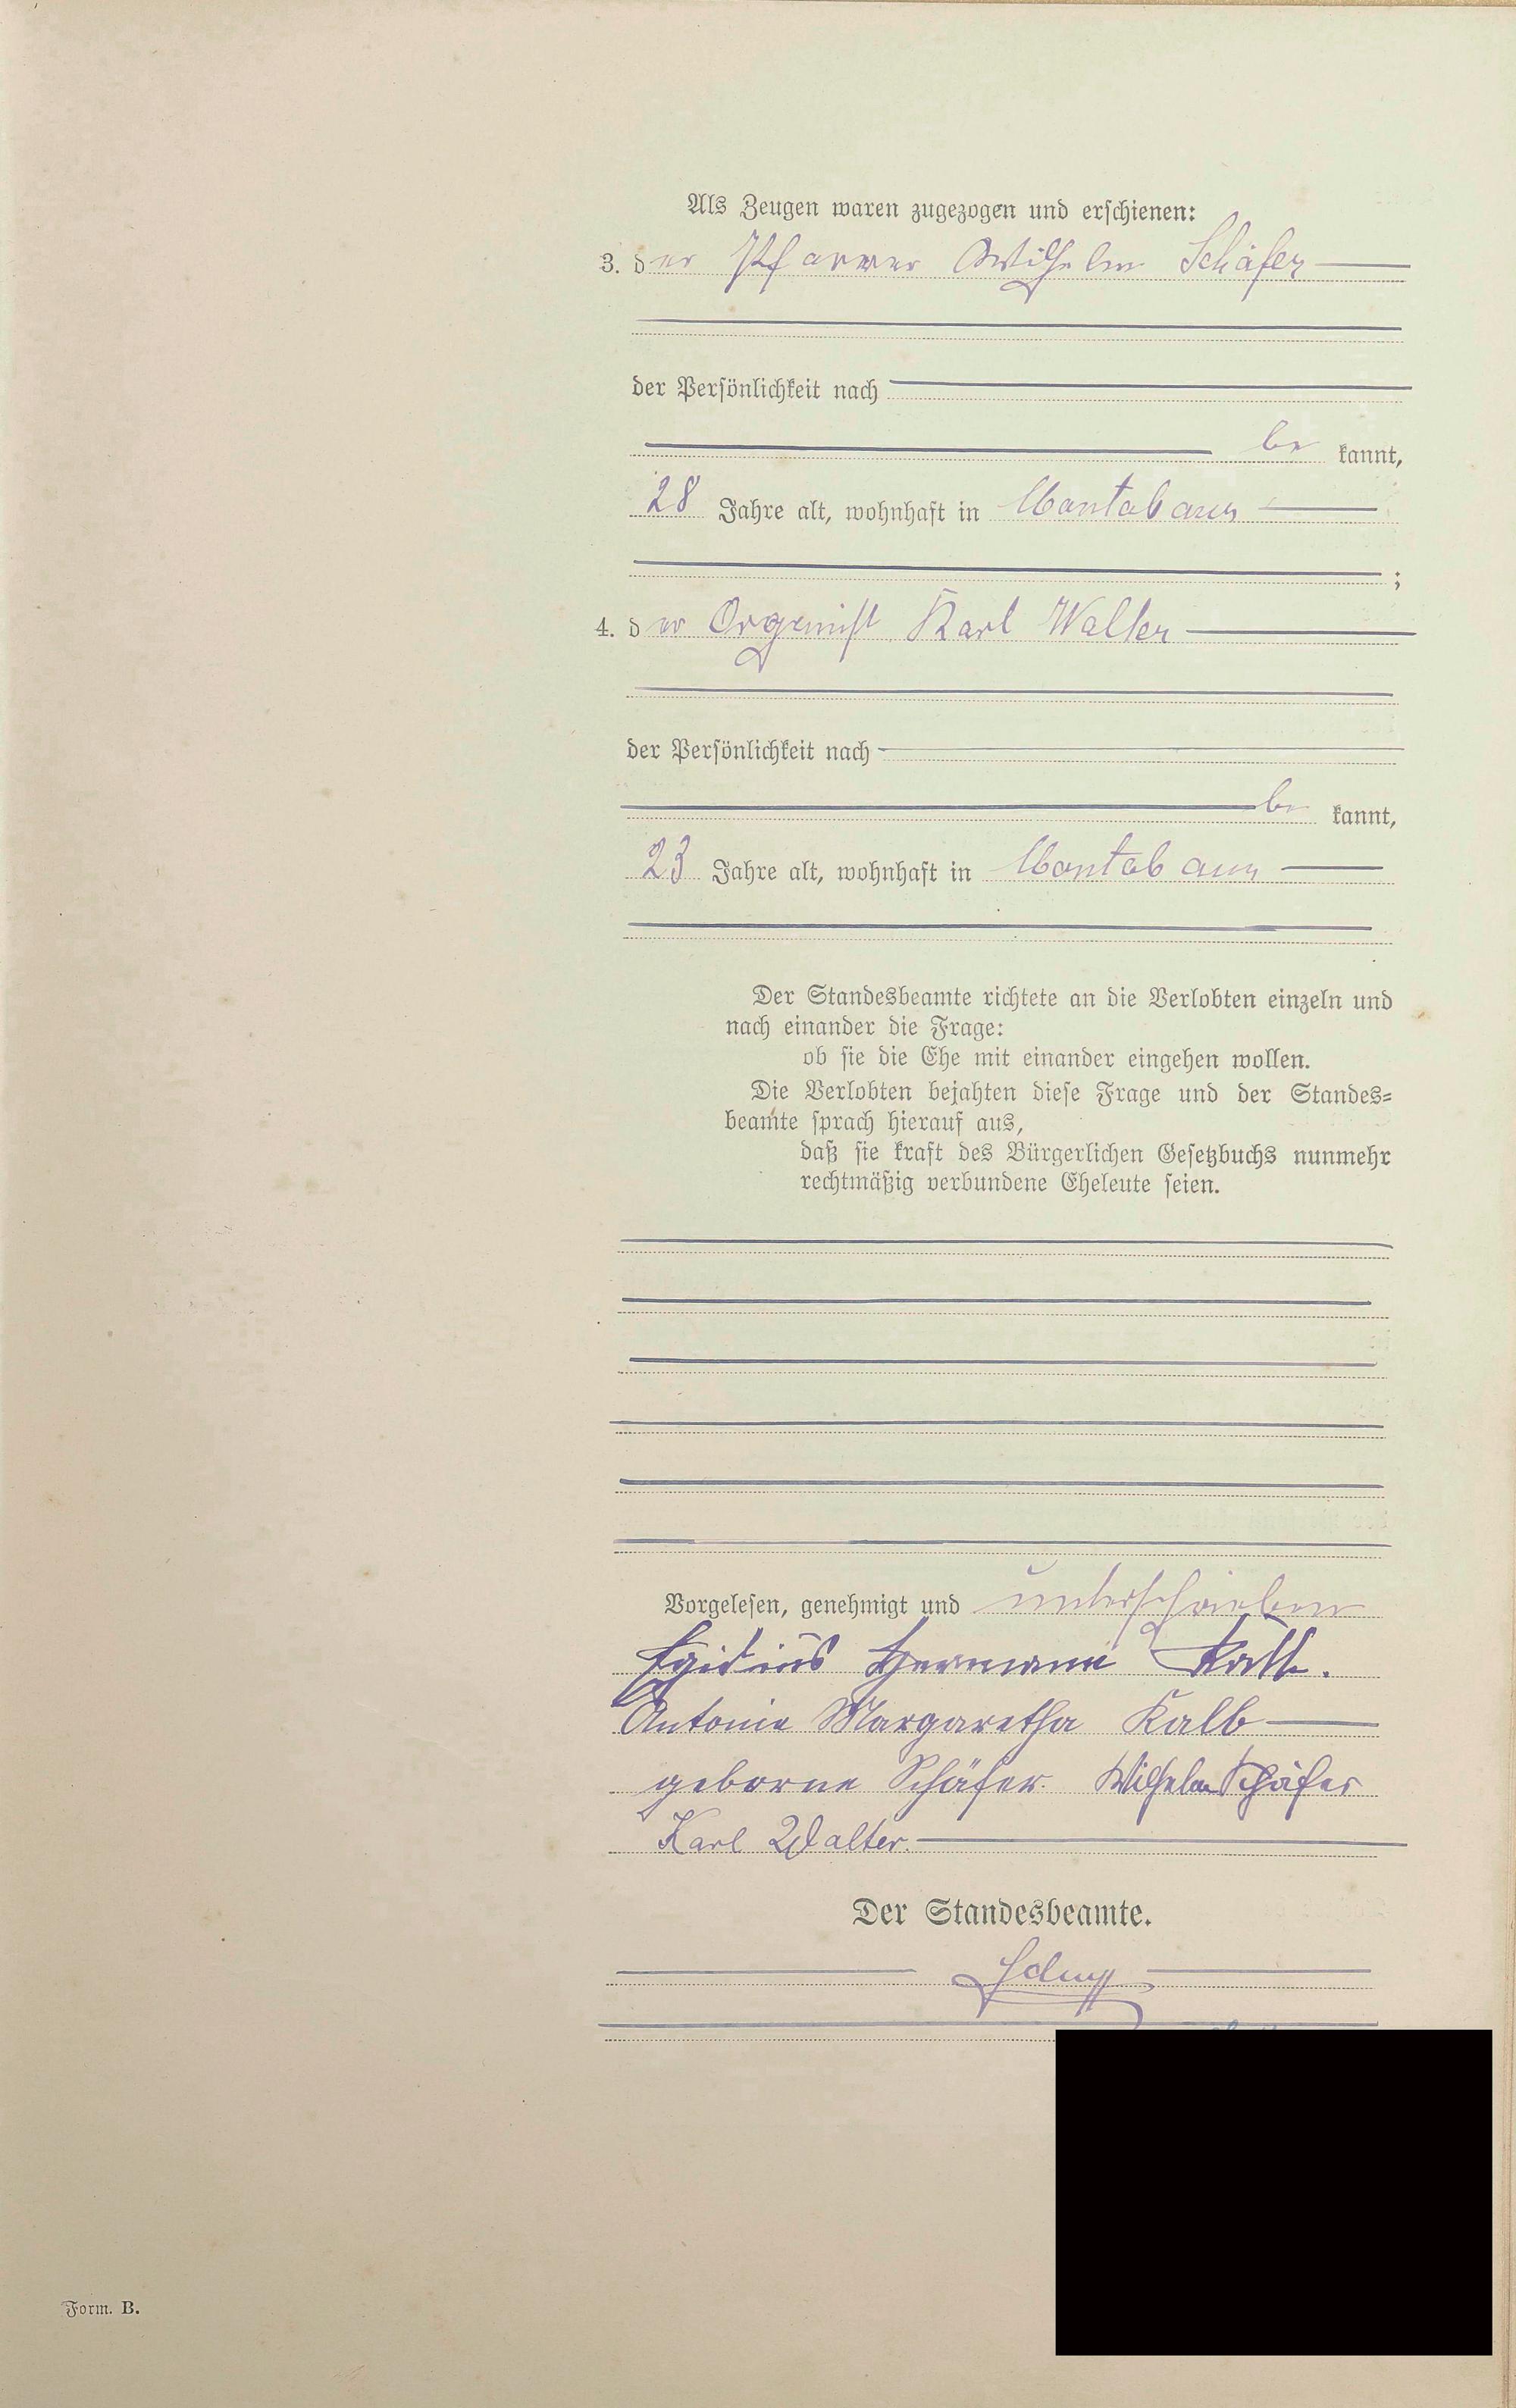 Als Zeugen waren zugezogen und erschienen:
3. der Pfarrer Wilhelm Schäfer
der Persönlichkeit nach
be kannt,
28 Jahre alt, wohnhaft in Montabaur
;
4. der Organist Karl Walter
der Persönlichkeit nach
be kannt,
23 Jahre alt, wohnhaft in Montabaur
Der Standesbeamte richtete an die Verlobten einzeln und
nach einander die Frage:
ob sie die Ehe mit einander eingehen wollen.
Die Verlobten bejahten diese Frage und der Standes-
beamte sprach hierauf aus,
daß sie kraft des Bürgerlichen Gesetzbuchs nunmehr
rechtmäßig verbundene Eheleute seien.
Vorgelesen, genehmigt und unterschrieben
Egidius Hermann Kalb.
Antonie Margaretha Kalb
geborne Schäfer. Wilhelm Schäfer
Karl Walter.
Der Standesbeamte.
Form. B.